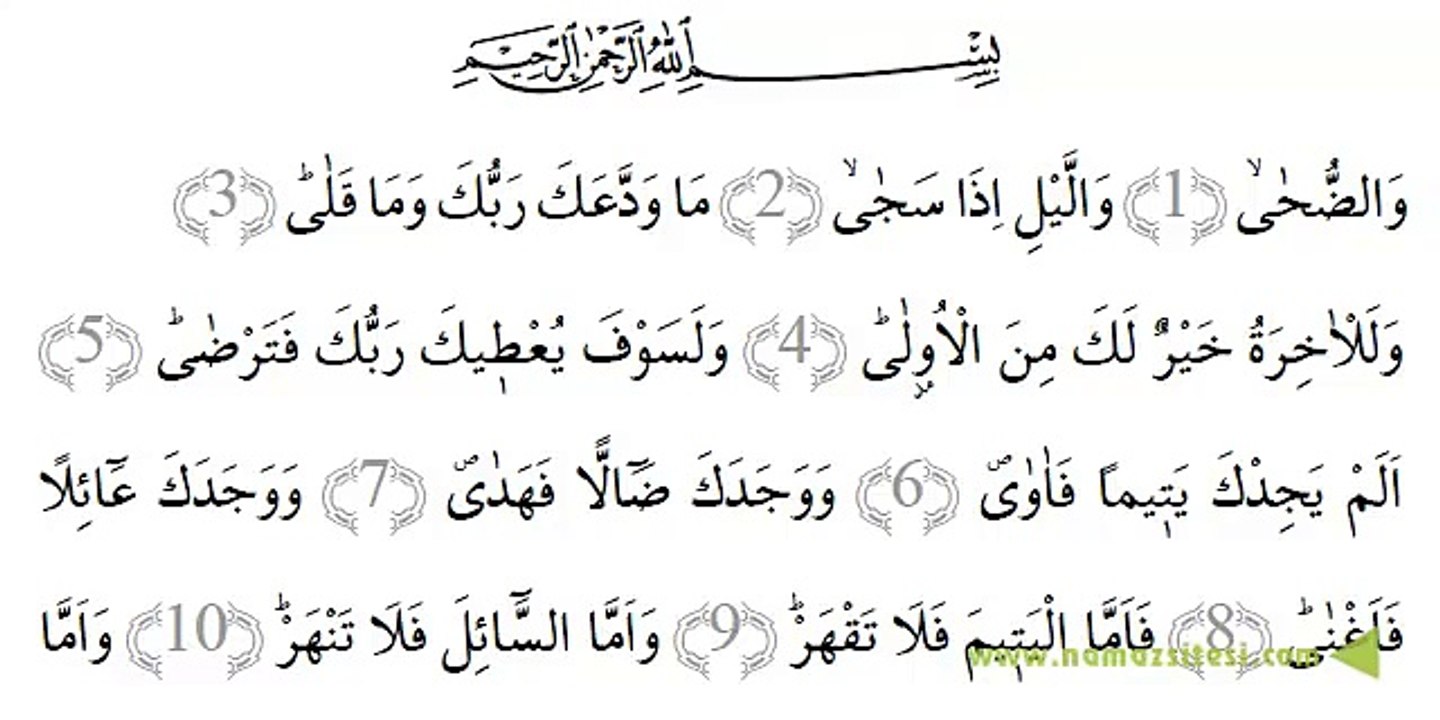 بِسْمِ اللّٰهِ الرَّحْمٰنِ الرَّحِيمِ
وَالضُّحٰىۙ ﴿1﴾ وَالَّيْلِ اِذَا سَجٰىۙ ﴿2﴾ مَا وَدَّعَكَ رَبُّكَ وَمَا قَلٰىؕ ﴿3﴾
وَلَلْاٰخِرَةُ خَيْرٌ لَكَ مِنَ الْاُو۫لٰىؕ ﴿4﴾ وَلَسَوْفَ يُعْط۪يكَ رَبُّكَ فَتَرْضٰىؕ ﴿5﴾
اَلَمْ يَجِدْكَ يَت۪يماً فَاٰوٰىۖ ﴿6﴾ وَوَجَدَكَ ضَٓالًّا فَهَدٰىۖ ﴿7﴾ وَوَجَدَكَ عَٓائِلًا
فَاَغْنٰىؕ ﴿8﴾ فَاَمَّا الْيَت۪يمَ فَلَا تَقْهَرْؕ ﴿9﴾ وَاَمَّا السَّٓائِلَ فَلَا تَنْهَرْؕ ﴿10﴾ وَاَمَّا
www.namazsitesi.com